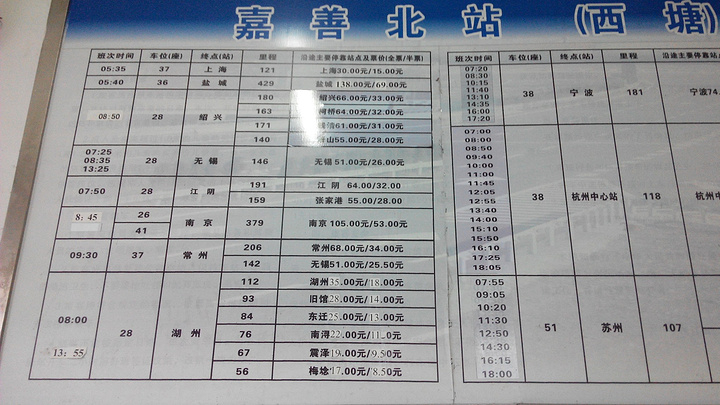 嘉善北站 (西塘)
班次时间 车位(座) 终点(站) 里程 沿途主要停靠站点及票价(全票/半票)
05:35 37 上海 121 上海30.00/15.00元
05:40 36 盐城 429 盐城 138.00/69.00元
08:50 28 绍兴 180 绍兴66.00/33.00元
163 柯桥64.00/32.00元
171 61.00/31.00元
140 55.00/28.00元
07:25
08:35
13:25
28 无锡 146 无锡51.00/26.00元
07:50 28 江阴 191 江阴 64.00/32.00
159 张家港 55.00/28.00
8:45 26 南京 379 南京 105.00/53.00元
41
09:30 37 常州 206 常州68.00/34.00元
142 无锡51.00/25.50元
08:00
13:55
28 湖州 112 湖州35.00元/18.00元
93 旧馆28.00元/14.00元
84 东迁25.00元/13.00元
76 南浔22.00元/11.0元
67 震泽19.00元/9.50元
56 梅埝17.00元/8.50元
班次时间 车位(座) 终点(站) 里程 沿途主要
07:20
08:30
10:15
11:40
13:10
14:35
16:00
17:20
38 宁波 181 宁波74.
07:00
08:00
08:50
09:40
10:00
11:00
11:45
12:05
12:55
13:40
14:00
15:10
15:50
16:10
17:25
18:05
38 杭州中心站 118 杭州中
07:55
09:05
10:20
11:30
12:50
14:30
16:15
18:00
51 苏州 107